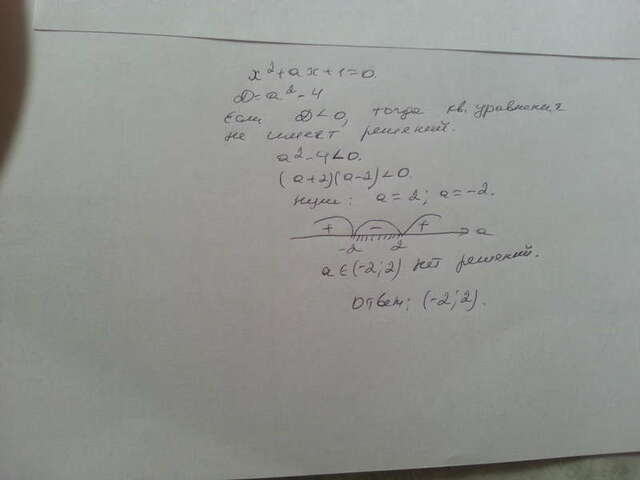 x²+ax+1=0.
D=a²-4
Если D<0, тогда кв. уравнения
не имеет решений.
a²-4<0.
(a+2)(a-2)<0.
нули: a=2; a=-2.
+ - +
-2 2 a
a∈(-2;2) нет решений.
Ответ: (-2;2).